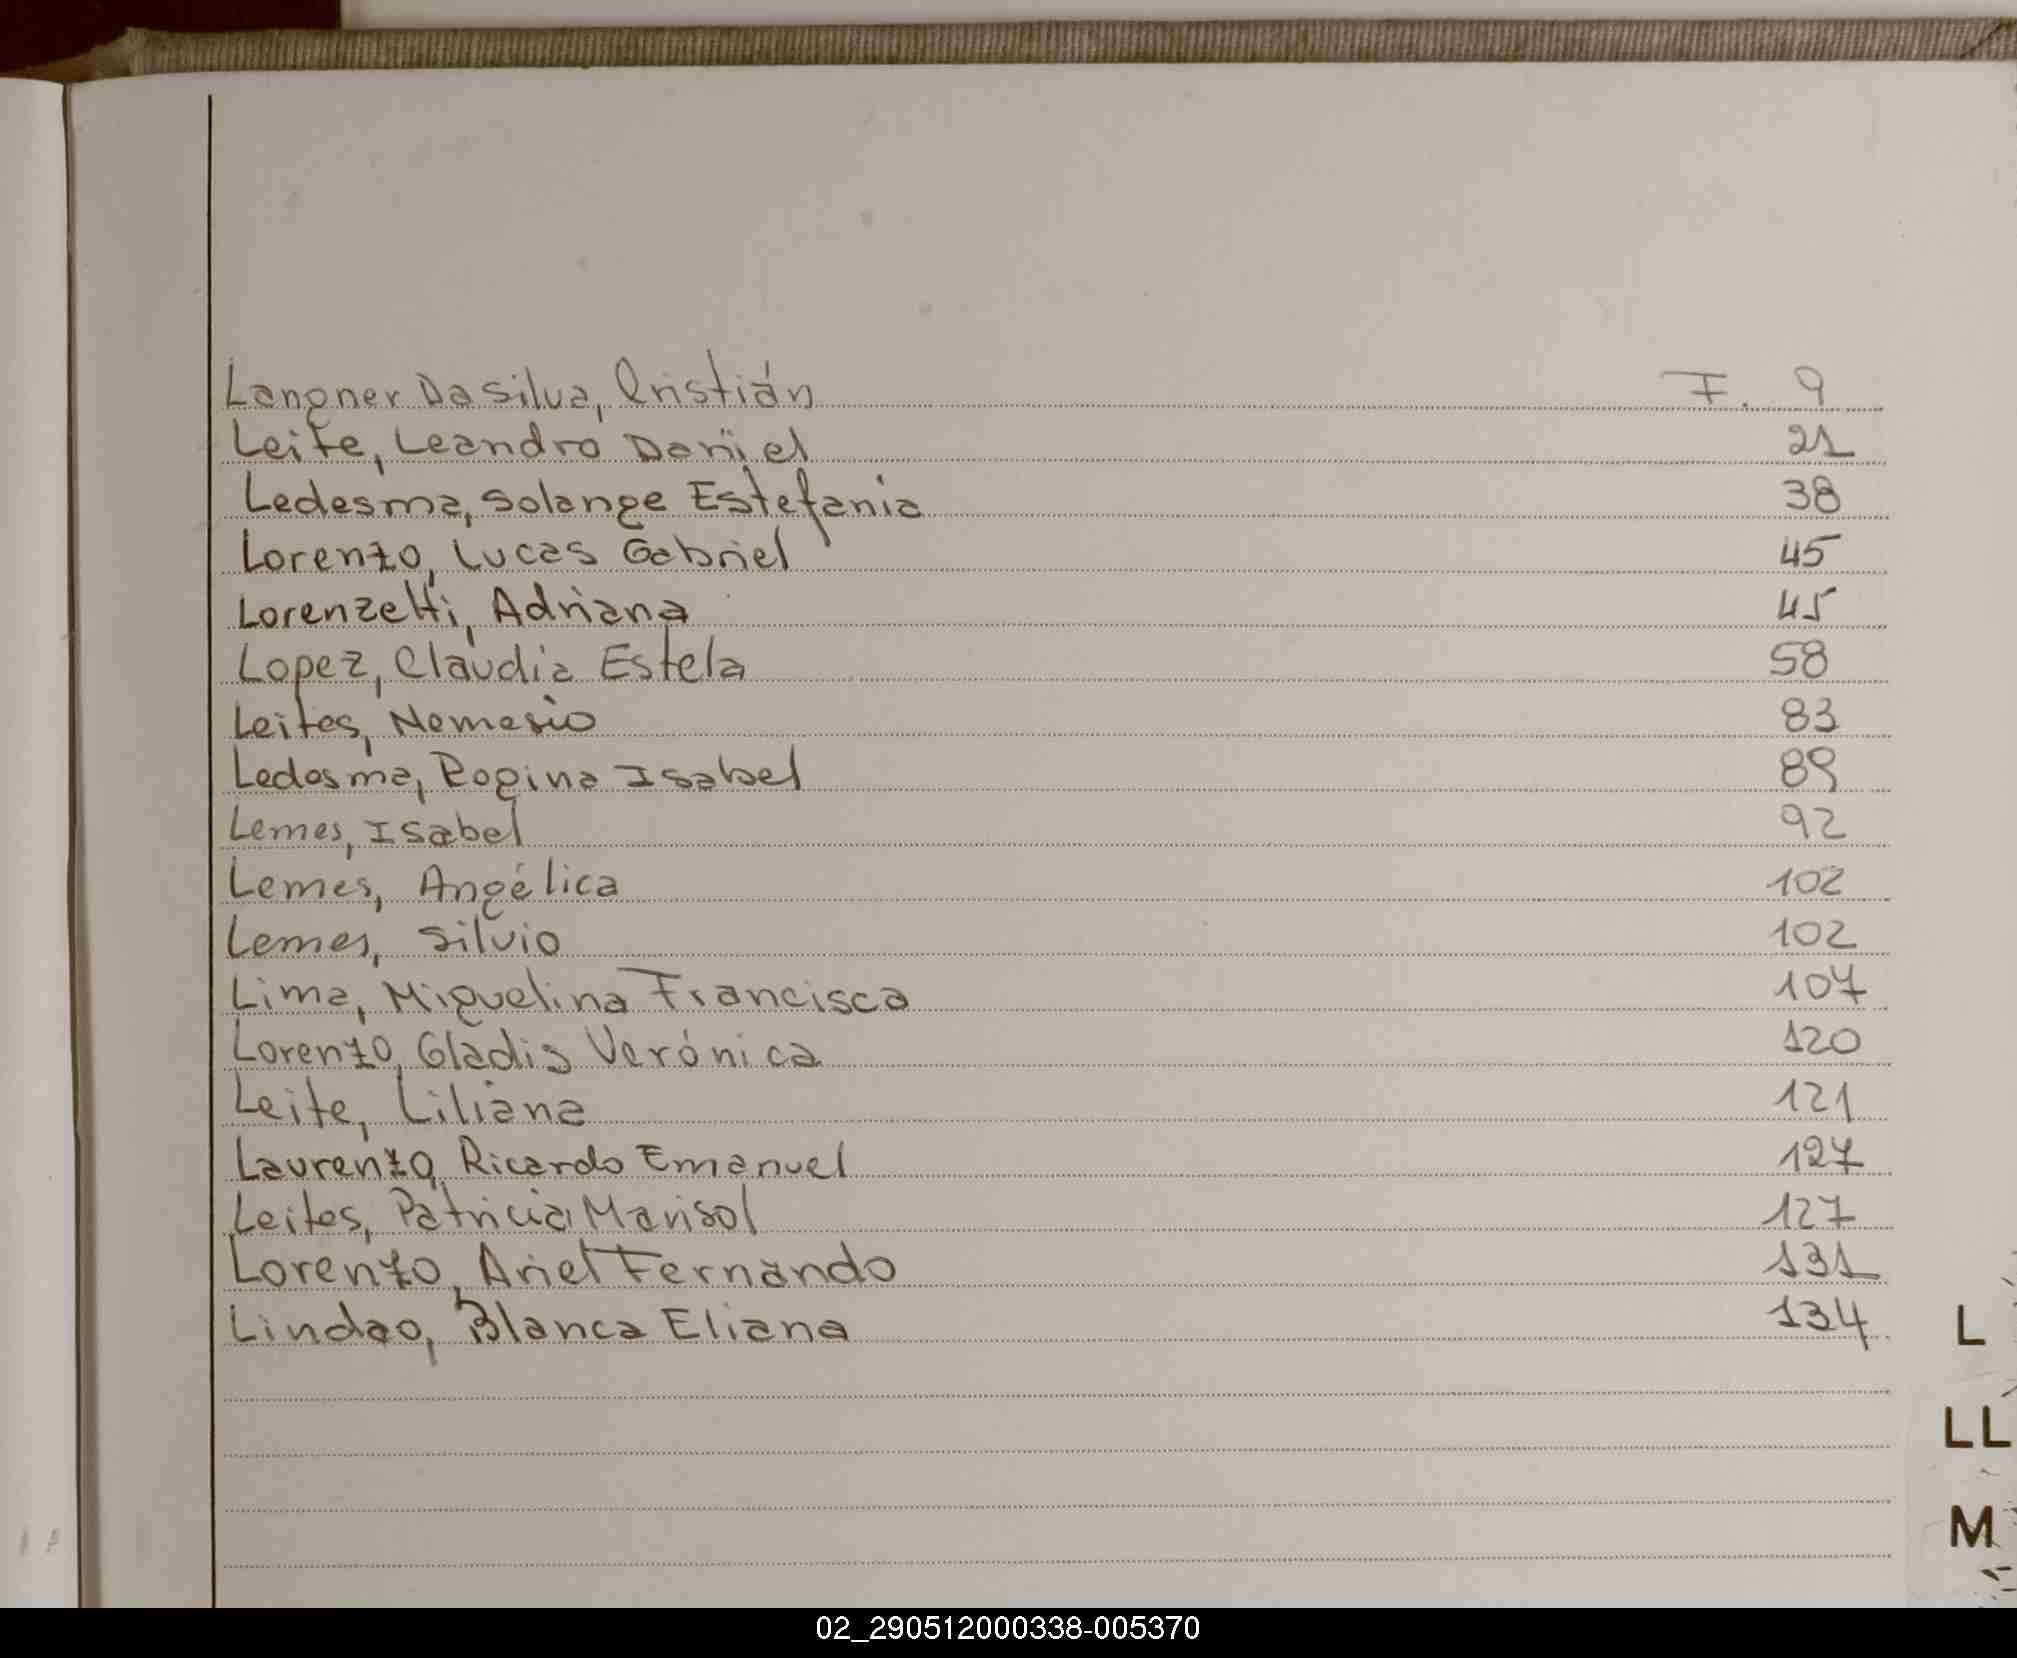 Langner Da Silva, Cristián F. 9
Leite, Leandro Daniel 21
Ledesma, Solange Estefania 38
Lorenzo, Lucas Gabriel 45
Lorenzetti, Adriana 45
Lopez, Claudia Estela 58
Leites, Nemesio 83
Ledesma, Regina Isabel 89
Lemes, Isabel 92
Lemes, Angélica 102
Lemes, Silvio 102
Lima, Miguelina Francisca 107
Lorenzo, Gladis Verónica 120
Leite, Liliana 121
Laurenzo, Ricardo Emanuel 127
Leites, Patricia Marisol 127
Lorenzo, Ariel Fernando 131
Lindao, Blanca Eliana 134
L
LL
M
02_290512000338-005370